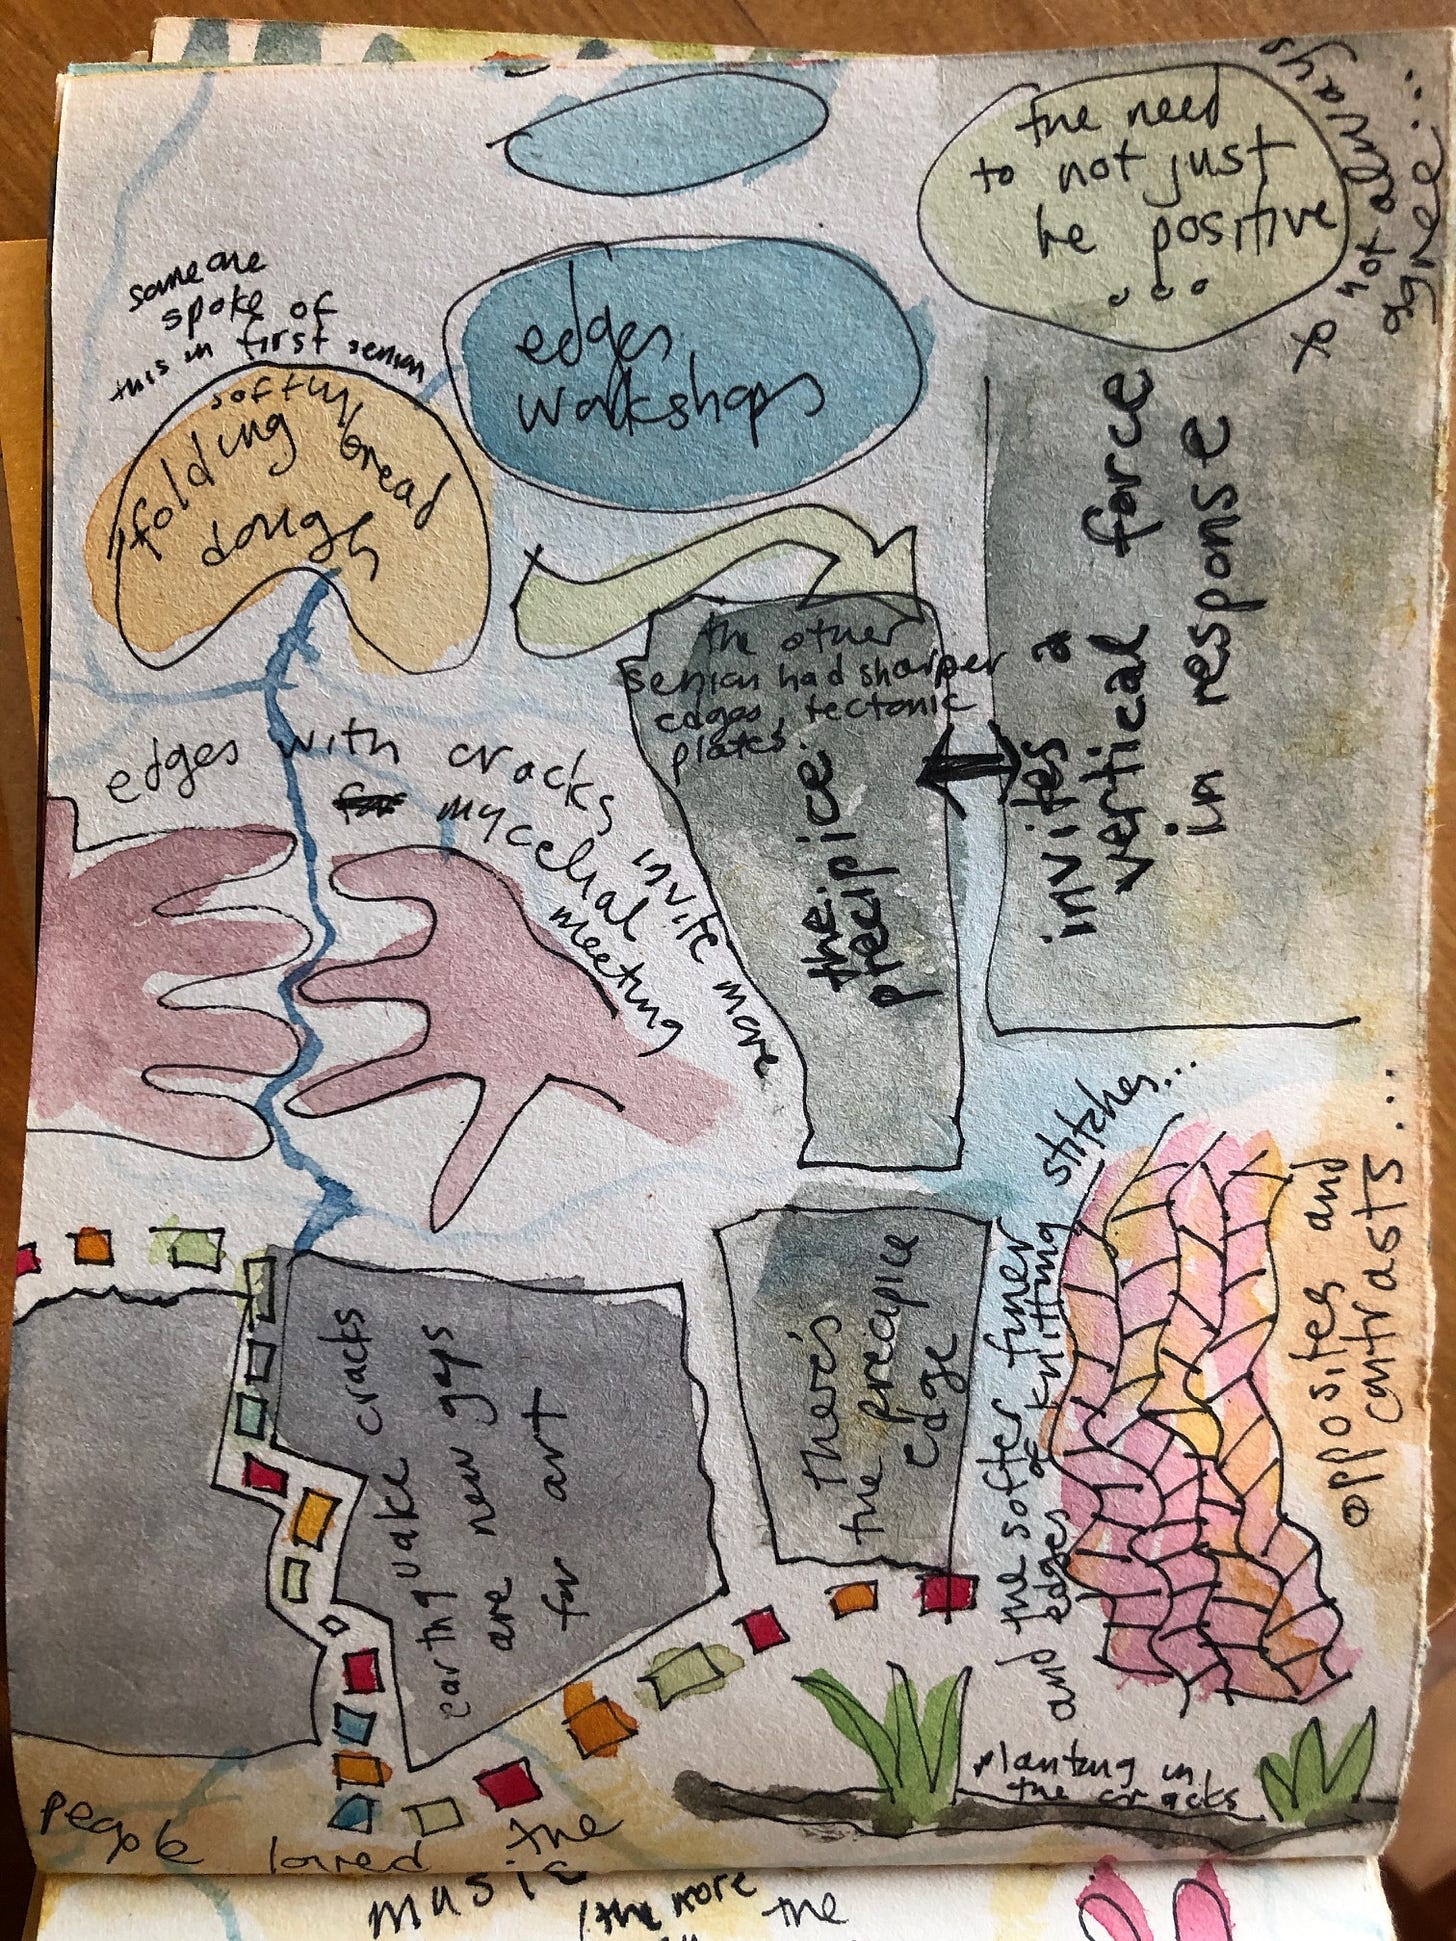 the need
to not just
be positive
...
to not always
agree...
someone
spoke of
this in first session
softly
"folding bread
dough
edges
workshops
invites a
vertical force
in response
the other
session had sharper
edges, tectonic
plates.
the
precipice
edges with cracks invite more
mycelial
meeting
stitches...
there's
the precipice
edge
and the softer finer
edges of knitting
opposites and
contrasts...
earthquake cracks
are new gaps
for art
planting in
the cracks
People loved the
music
(the more the